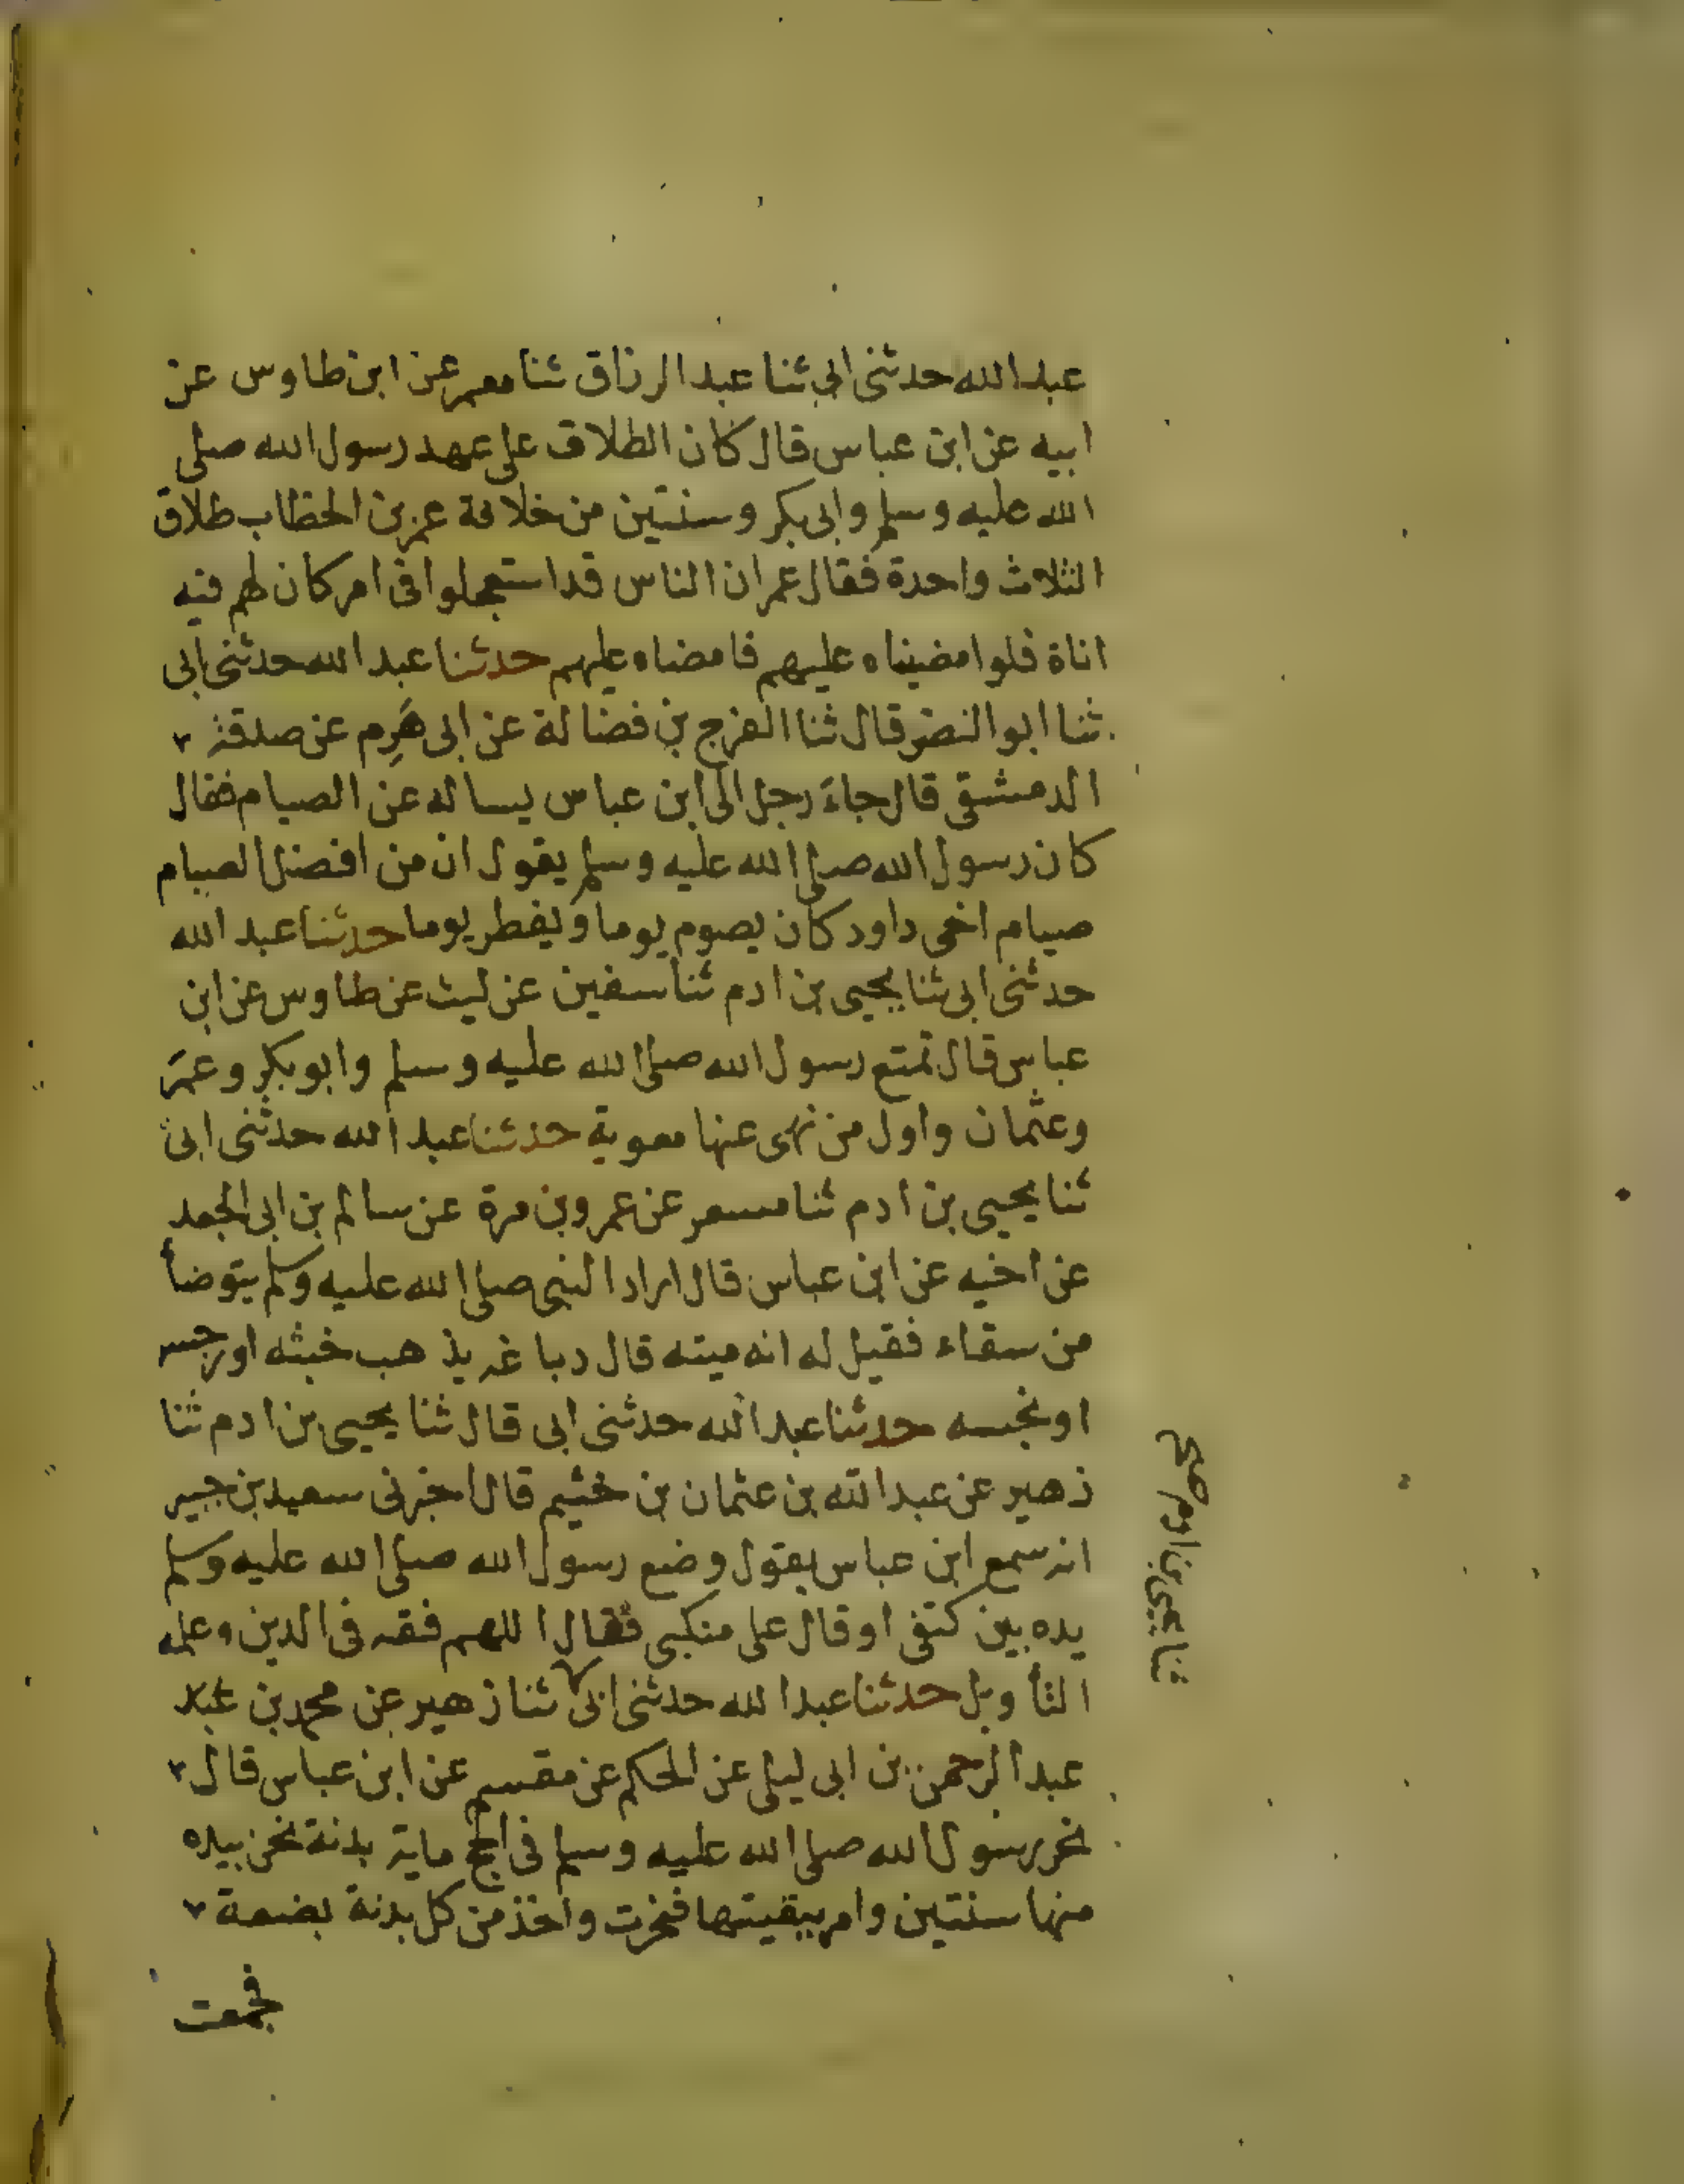 عبد الله حدثنى ابى ثنا عبد الرزاق ثنا معمر عن ابن طاوس عن
ابيه عن ابن عباس قال كان الطلاق على عهد رسول الله صلى
الله عليه وسلم وابى بكر وسنتين من خلافة عمر بن الخطاب طلاق
الثلاث واحدة فقال عمر ان الناس قد استعجلوا فى امر كان لهم فيه
اناة فلوا مضيناه عليهم فامضاه عليهم حدثنا عبد الله حدثنى ابى
ثنا ابو النضر قال ثنا الفرج بن فضالة عن ابى هَرِم عن صدقة
الدمشقى قال جاءَ رجل الى ابن عباس يساله عن الصيام فقال
كان رسول الله صلى الله عليه وسلم يقول ان من افضل الصيام
صيام اخى داود كان يصوم يوما ويفطر يوما حدثنا عبد الله
حدثنى ابى ثنا يحيى بن ادم ثنا سفين عن ليث عن طاوس عن ابن
عباس قال تمتع رسول الله صلى الله عليه وسلم وابو بكر وعمر
وعثمان واول من نهى عنها معوية حدثنا عبد الله حدثنى ابى
ثنا يحيى بن ادم ثنا مسعر عن عمرو بن مرة عن سالم بن ابى الجعد
عن اخيه عن ابن عباس قال اراد النبى صلى الله عليه وسلم يتوضأ
من سقاء فقيل له انه ميته قال دباغه يذهب خبثه او رجسه
او نجسه حدثنا عبد الله حدثنى ابى قال ثنا يحيى بن ادم ثنا
زهير عن عبد الله بن عثمان بن خثيم قال اخبرنى سعيد بن جبير
انه سمع ابن عباس يقول وضع رسول الله صلى الله عليه وسلم
يده بين كتفى او قال على منكبى فقال اللهم فقه فى الدين وعلمه
التأويل حدثنا عبد الله حدثنى ابى ثنا زهير عن محمد بن عبد
عبد الرحمن بن ابى ليلى عن الحكم عن مقسم عن ابن عباس قال
نحر رسول الله صلى الله عليه وسلم فى الحج ماية بدنة نحر بيده
منها سنتين وامر ببقيتها فنحرت واخذ من كل بدنة بضعة
فجمعت
ثنا يحيى بن ادم صح